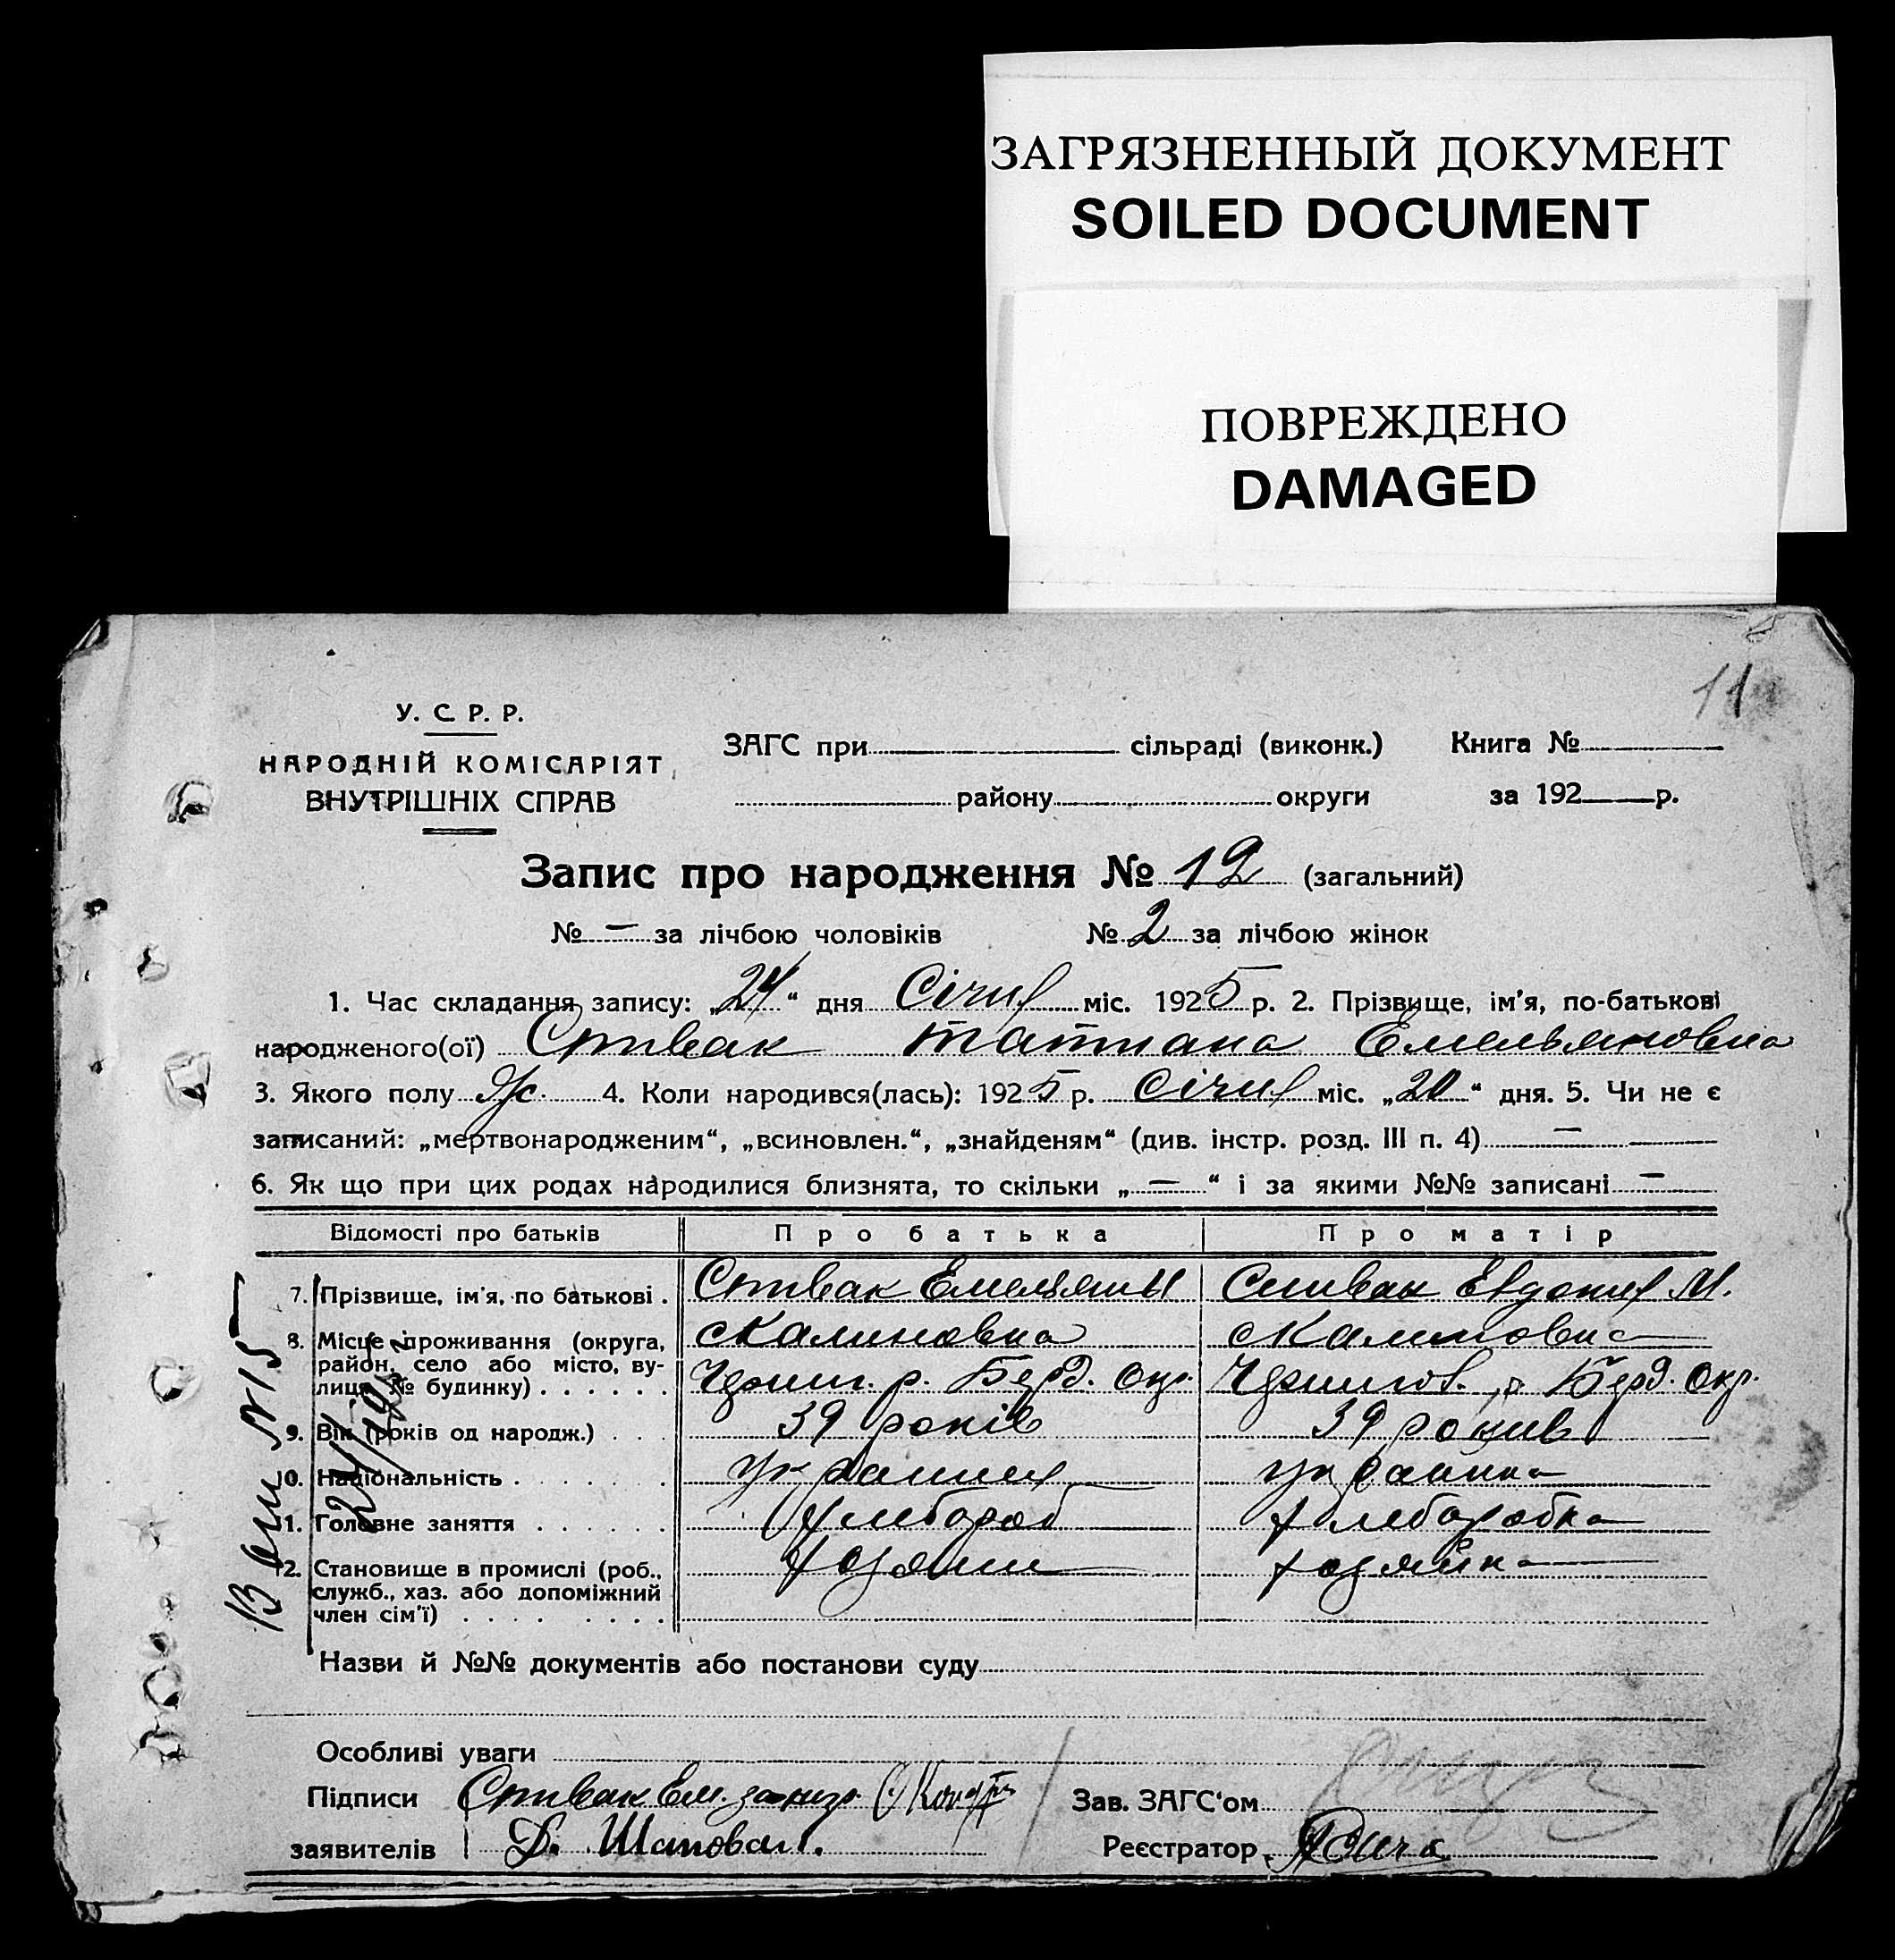 ЗАГРЯЗНЕННЫЙ ДОКУМЕНТ
SOILED DOCUMENT
ПОВРЕЖДЕНО
DAMAGED
11
У. С. Р. Р.
НАРОДНІЙ КОМІСАРІЯТ
ВНУТРІШНІХ СПРАВ
ЗАГС при сільраді (виконк.) Книга №
району округи за 192 р.
Запис про народження № 12 (загальний)
№ — за лічбою чоловіків № 2 за лічбою жінок
1. Час складання запису: „24“ дня Січня міс. 1925 р. 2. Прізвище, ім'я, по-батькові
народженого(ої) Спивак Татиана Емельяновна
3. Якого полу ж. 4. Коли народився(лась): 1925 р. Січня міс. „20“ дня. 5. Чи не є
записаний: „мертвонародженим“, „всиновлен.“, „знайденям“ (див. інстр. розд. III п. 4) —
6. Як що при цих родах народилися близнята, то скільки „—“ і за якими №№ записані —
Відомості про батьків Про батька Про матір
7. Прізвище, ім'я, по батькові . Спивак Емельян Спивак Евдокия М.
8. Місце проживання (округа, район, село або місто, вулиця, № будинку) . . . . . .
с Калиновка с Калиновка
Черниг. р. Берд. Окр. Чернигов. р Берд. Окр.
9. Вік (років од народж.) . . . 39 років 39 рокив
10. Національність . . . . . . украинец украинка
11. Головне заняття . . . . . . хлебороб хлеборобка
12. Становище в промислі (роб., служб., хаз. або допоміжний член сім'ї) . . . . . . . . хозяин хозяйка
№ 15
24/
Назви й №№ документів або постанови суду
Особливі уваги
Підписи Спивак Ем. Зав. ЗАГС'ом
заявителів Д. Шаповал. Реєстратор